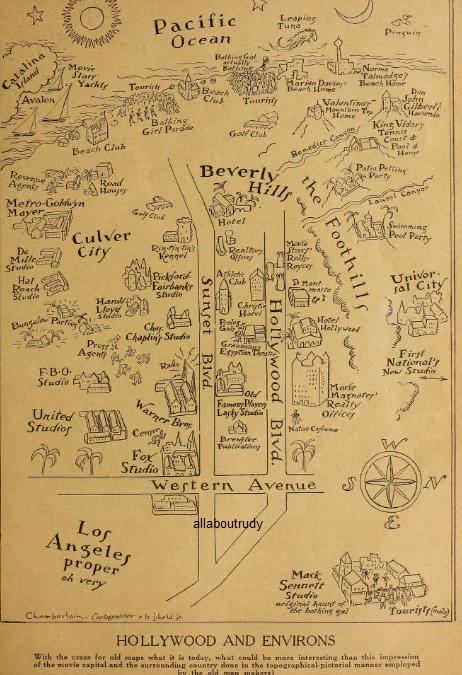 Pacific
Ocean
Leaping
Tuna
Penguin
Catalina
Island
Avalon
Movie
Stars'
Yachts
Tourists
Bathing
Girl Parade
Beach Club
Beach
Club
Bathing Gal
actually
Bathing
Tourists
Marion Davies'
Beach Home
Norma
Talmadge's
Beach Home
Golf Club
Valentino's
Mountain Top
Home
Don
John
Gilbert's
Hacienda
King Vidor's
Tennis
Court &
Pool &
House
Benedict Canyon
Patio Petting
Party
Laurel Canyon
Swimming
Pool Party
Revenue
Agents
Road
House
Beverly
Hills
Hotel
the
Foothills
Metro-Goldwyn
Mayer
Golf Club
Rin-tin-tin's
Kennel
Culver
City
De
Mille
Studio
Hal
Roach
Studio
Realtors
Offices
Movie
Stars'
Rolls
Royces
Pickford
Fairbanks
Studio
Athletic
Club
Christie
Hotel
Montmartre
Universal
City
Harold
Lloyd
Studio
Bungalow Parties
Chas.
Chaplin Studio
Sunset Blvd.
Hollywood Blvd.
Grauman's
Egyptian Theatre
Hotel
Hollywood
Press
Agents
First
National's
New Studio
F-B-O-
Studio
Radio
Warner Bros.
Old
Famous Players
Lasky Studio
Movie
Magnates'
Realty
Offices
United
Studios
Censors
Fox
Studio
Brewster
Publications
Native Customs
Western Avenue
W
S
N
E
Los
Angeles
proper
oh very
allaboutrudy
Mack
Sennett
Studio
original haunt of
the bathing gal
Tourists (male)
HOLLYWOOD AND ENVIRONS
With the craze for old maps what it is today, what could be more interesting than this impression
of the movie capital and the surrounding country done in the topographical-pictorial manner employed
by the old map makers?